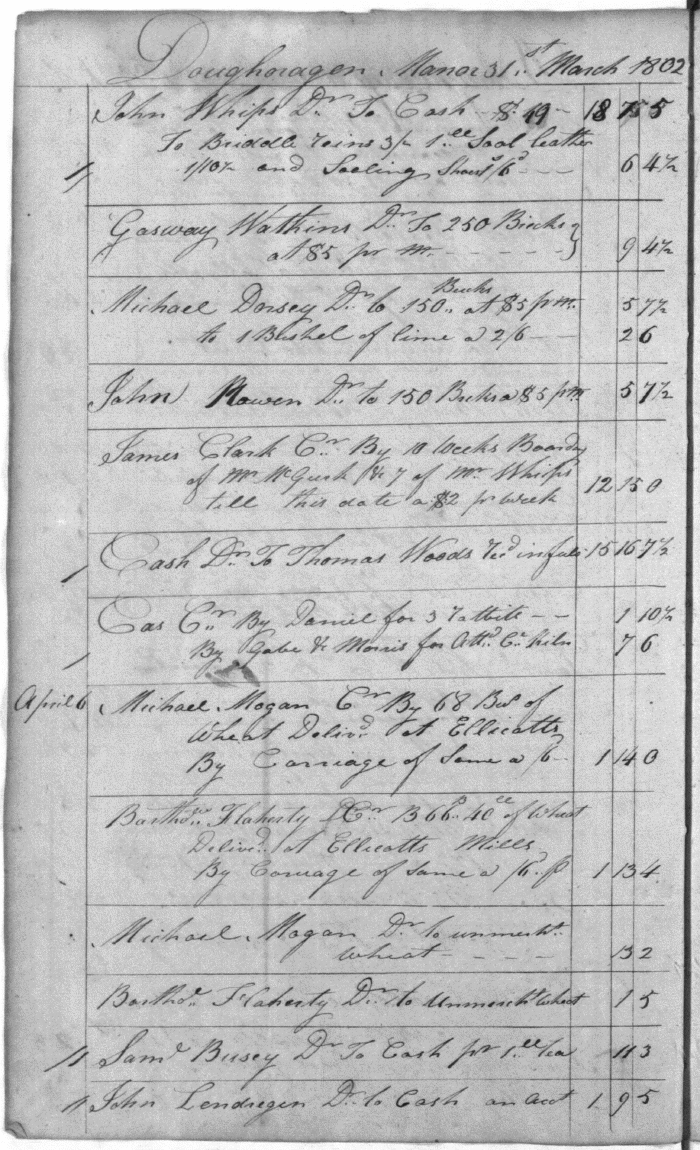 Doughoragen Manor 31st March 1802
John Whips Dr To Cash 18 5
To Briddle reins 3/ 1 ll Soal leather
1/10½ and Soeling Shoes /6 — 6 4½
Gasway Watkins Dr To 250 Bricks
at 85 pr M. — 9 4½
Michael Dorsey Dr to 150 Bricks at 85 pr M. 5 7½
to 1 Bushel of lime a 2/6 — 2 6
John Rowen Dr to 150 Bricks a 85 pr M 5 7½
James Clark Cr By 10 Weeks Boardg
of Mr McGurk & 7 of Mr Whips
till this date a $2 pr Week 12 15 0
Cash Dr To Thomas Woods recd in full 15 16 7½
Cas Cr By Daniel for 3 rabbits — 1 10½
By Gabe & Morris for Attg Kiln 7 6
April 6 Michael Mogan Cr By 68 Bus of
Wheat Delivd at Ellicatts
By Carriage of Same a /6 — 1 14 0
Barthow Flaherty Cr B 66 40 ll of Wheat
Delivd at Ellicatts Mills
By Carriage of Same a /6 1 13 4
Michael Mogan Dr to unmercht
Wheat — 13 2
Barthow Flaherty Dr to Unmercht Wheat 1 5
Saml Busey Dr To Cash pr 1 ll tea 11 3
John Lendregen Dr to Cash on acct 1 9 5